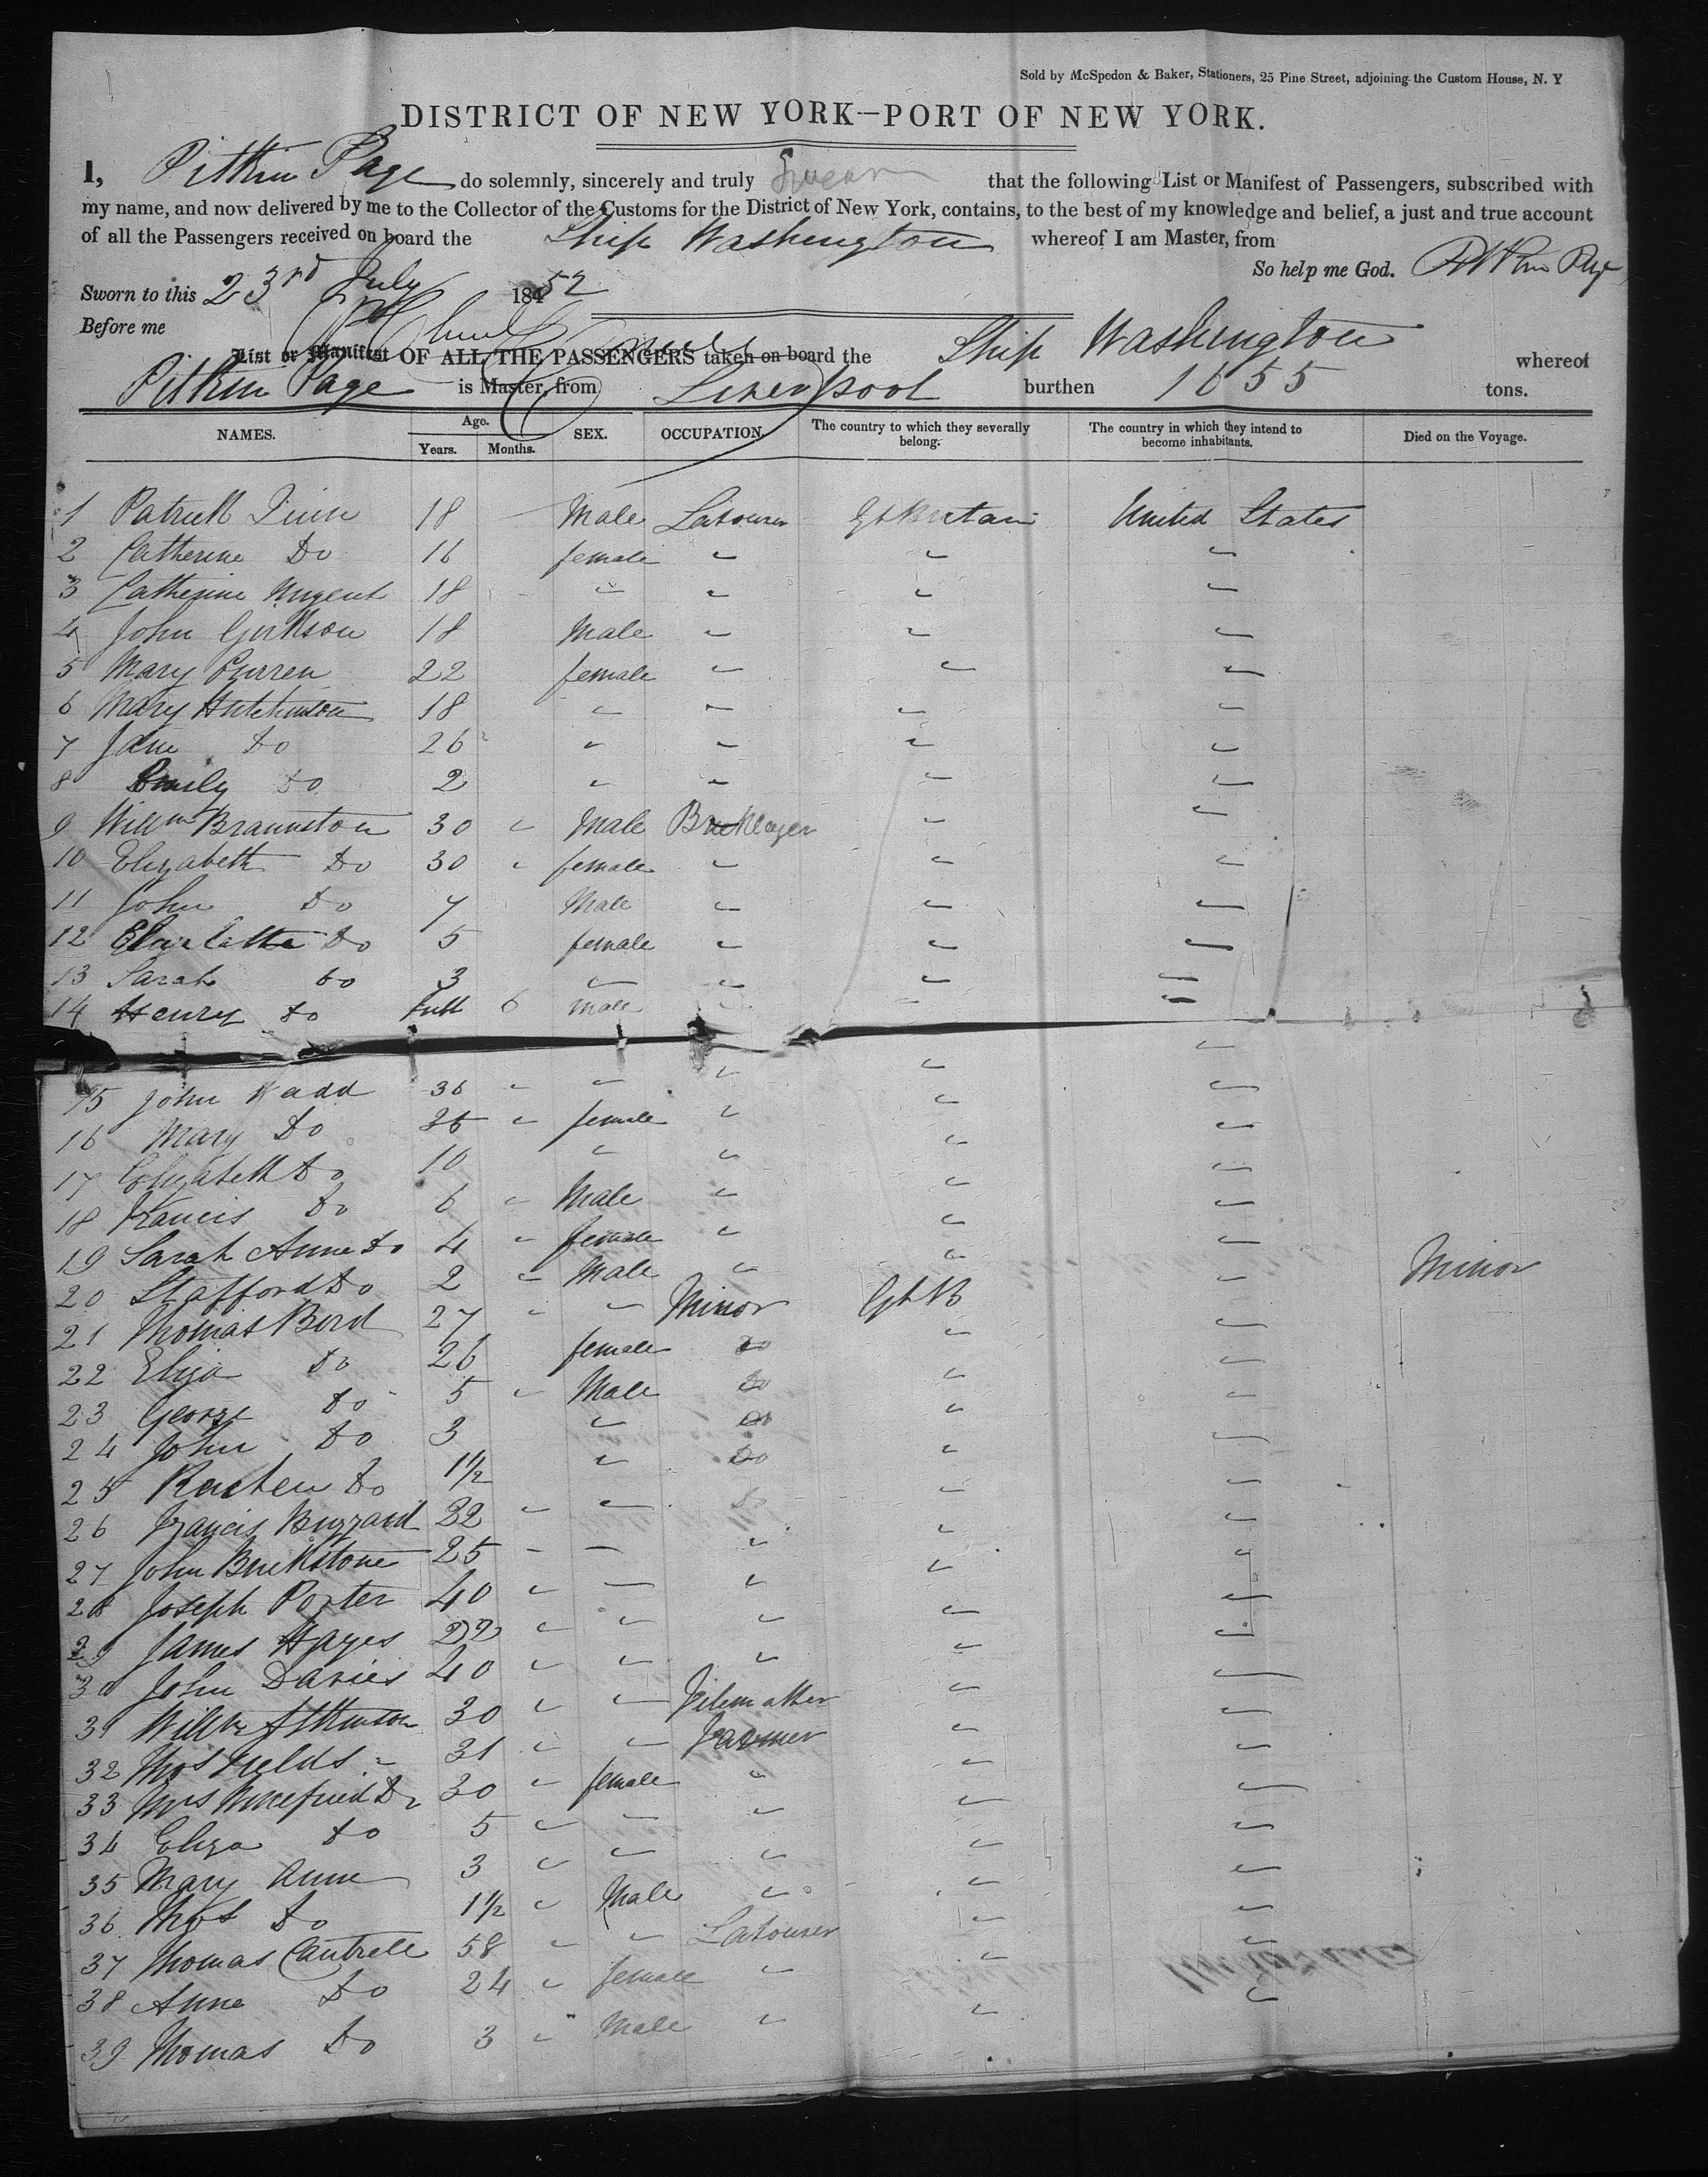 Sold by McSpedon & Baker, Stationers, 25 Pine Street, adjoining the Custom House, N. Y
DISTRICT OF NEW YORK—PORT OF NEW YORK.
I, Pitkin Page do solemnly, sincerely and truly Swear that the following List or Manifest of Passengers, subscribed with
my name, and now delivered by me to the Collector of the Customs for the District of New York, contains, to the best of my knowledge and belief, a just and true account
of all the Passengers received on board the Ship Washington whereof I am Master, from
So help me God. Pitkin Page
Sworn to this 23rd July 18452
Before me
List or Manifest OF ALL THE PASSENGERS taken on board the Ship Washington whereof
Pitkin Page is Master, from Liverpool burthen 1655 tons.
NAMES. Age. Years. Months. SEX. OCCUPATION. The country to which they severally belong. The country in which they intend to become inhabitants. Died on the Voyage.
1 Patrick Quin 18 Male Labourer Gt Britain United States
2 Catherine Do 16 female " " "
3 Catherine Nugent 18 " " " "
4 John 18 Male " " "
5 Mary Curren 22 female " " "
6 Mary Hutchinson 18 " " " "
7 Jane Do 26 " " " "
8 Emily Do 2 " " " "
9 Willm Braunston 30 " Male Bricklayer " "
10 Elizabeth Do 30 " female " " "
11 John Do 7 Male " " "
12 Charlotte Do 5 female " " "
13 Sarah Do 3 " " " "
14 Henry Do Inft 6 Male " " "
15 John Wadd 36 " " " " "
16 Mary Do 36 " female " " "
17 Elizabeth Do 10 " " " "
18 Francis Do 6 " Male " " "
19 Sarah Anne Do 4 " female " " "
20 Stafford Do 2 " Male " " "
21 Thomas Bord 27 " " Minor Gt B " Minor
22 Eliza Do 26 female Do " "
23 George Do 5 " Male Do " "
24 John Do 3 " Do " "
25 Do 1½ " Do " "
26 Francis Buzzard 22 " " Do " "
27 John Buckstone 25 " " " " "
28 Joseph Porter 40 " " " " "
29 James Hayes 22 " " " " "
30 John Davies 40 " " " " "
31 Willm Atkinson 30 " " Filemaker " "
32 Thos Fields 31 " " Farmer " "
33 Mrs Winefried Do 30 " female " " "
34 Eliza Do 5 " " " " "
35 Mary Anne 3 " " " " "
36 Thos Do 1½ " Male " " "
37 Thomas Cantrell 58 " " Labourer " "
38 Anne Do 24 " female " " "
39 Thomas Do 3 " Male " " "